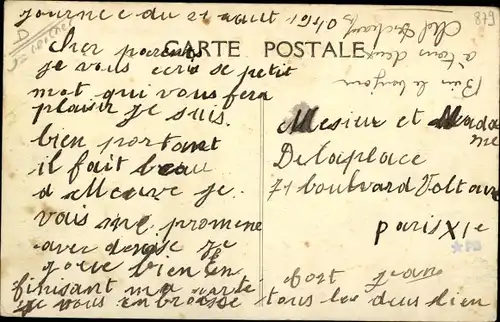 journee du 21 aout
CARTE POSTALE
cher parents
je vous ecris se petit
mot qui vous fera
plaisir je suis
bien portant
il fait beau
a Meuve je
vais me promene
avec denise je
joue bien en
finisant ma carte
je vous enbrasse tous les deus bien
fort
Mesieur et Mada
me
Delaplace
71 boulvard Voltaire
paris XIe
Bien le bonjour
a tous deux
879